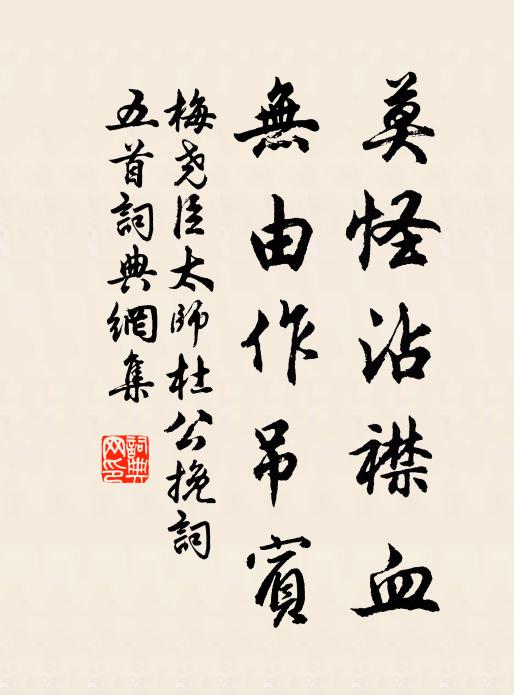 莫怪沾襟血
無由作吊賓
梅尧臣太師杜公挽詞
五首詞典網集
詞典网印